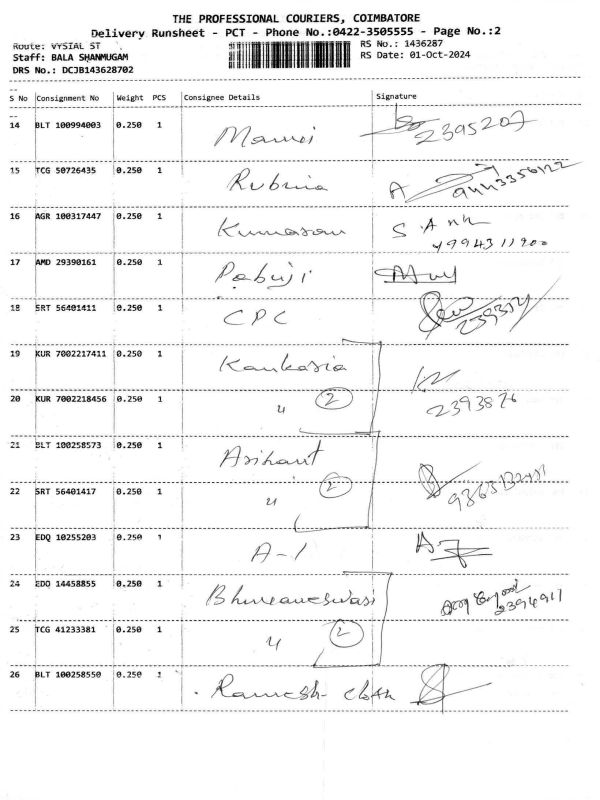 THE PROFESSIONAL COURIERS, COIMBATORE
Delivery Runsheet - PCT - Phone No.:0422-3505555 - Page No.:2
Route: VYSIAL ST RS No.: 1436287
Staff: BALA SHANMUGAM RS Date: 01-Oct-2024
DRS No.: DCJB143628702
S No Consignment No Weight PCS Consignee Details Signature
14 BLT 100994003 0.250 1 2395207
15 TCG 50726435 0.250 1 Rubina A 9443356122
16 AGR 100317447 0.250 1 Kumasan S. Anh
9994311900
17 AMD 29390161 0.250 1 Pabuji
18 SRT 56401411 0.250 1 CPC
19 KUR 7002217411 0.250 1 Kankasia
20 KUR 7002218456 0.250 1 " 2 2393876
21 BLT 100258573 0.250 1 Arihant
22 SRT 56401417 0.250 1 " 2
23 EDQ 10255203 0.250 1 A-1
24 EDO 14458855 0.250 1 Bhuvaneswasi
2394911
25 TCG 41233381 0.250 1 " 2
26 BLT 100258550 0.250 1 Ramesh cloth